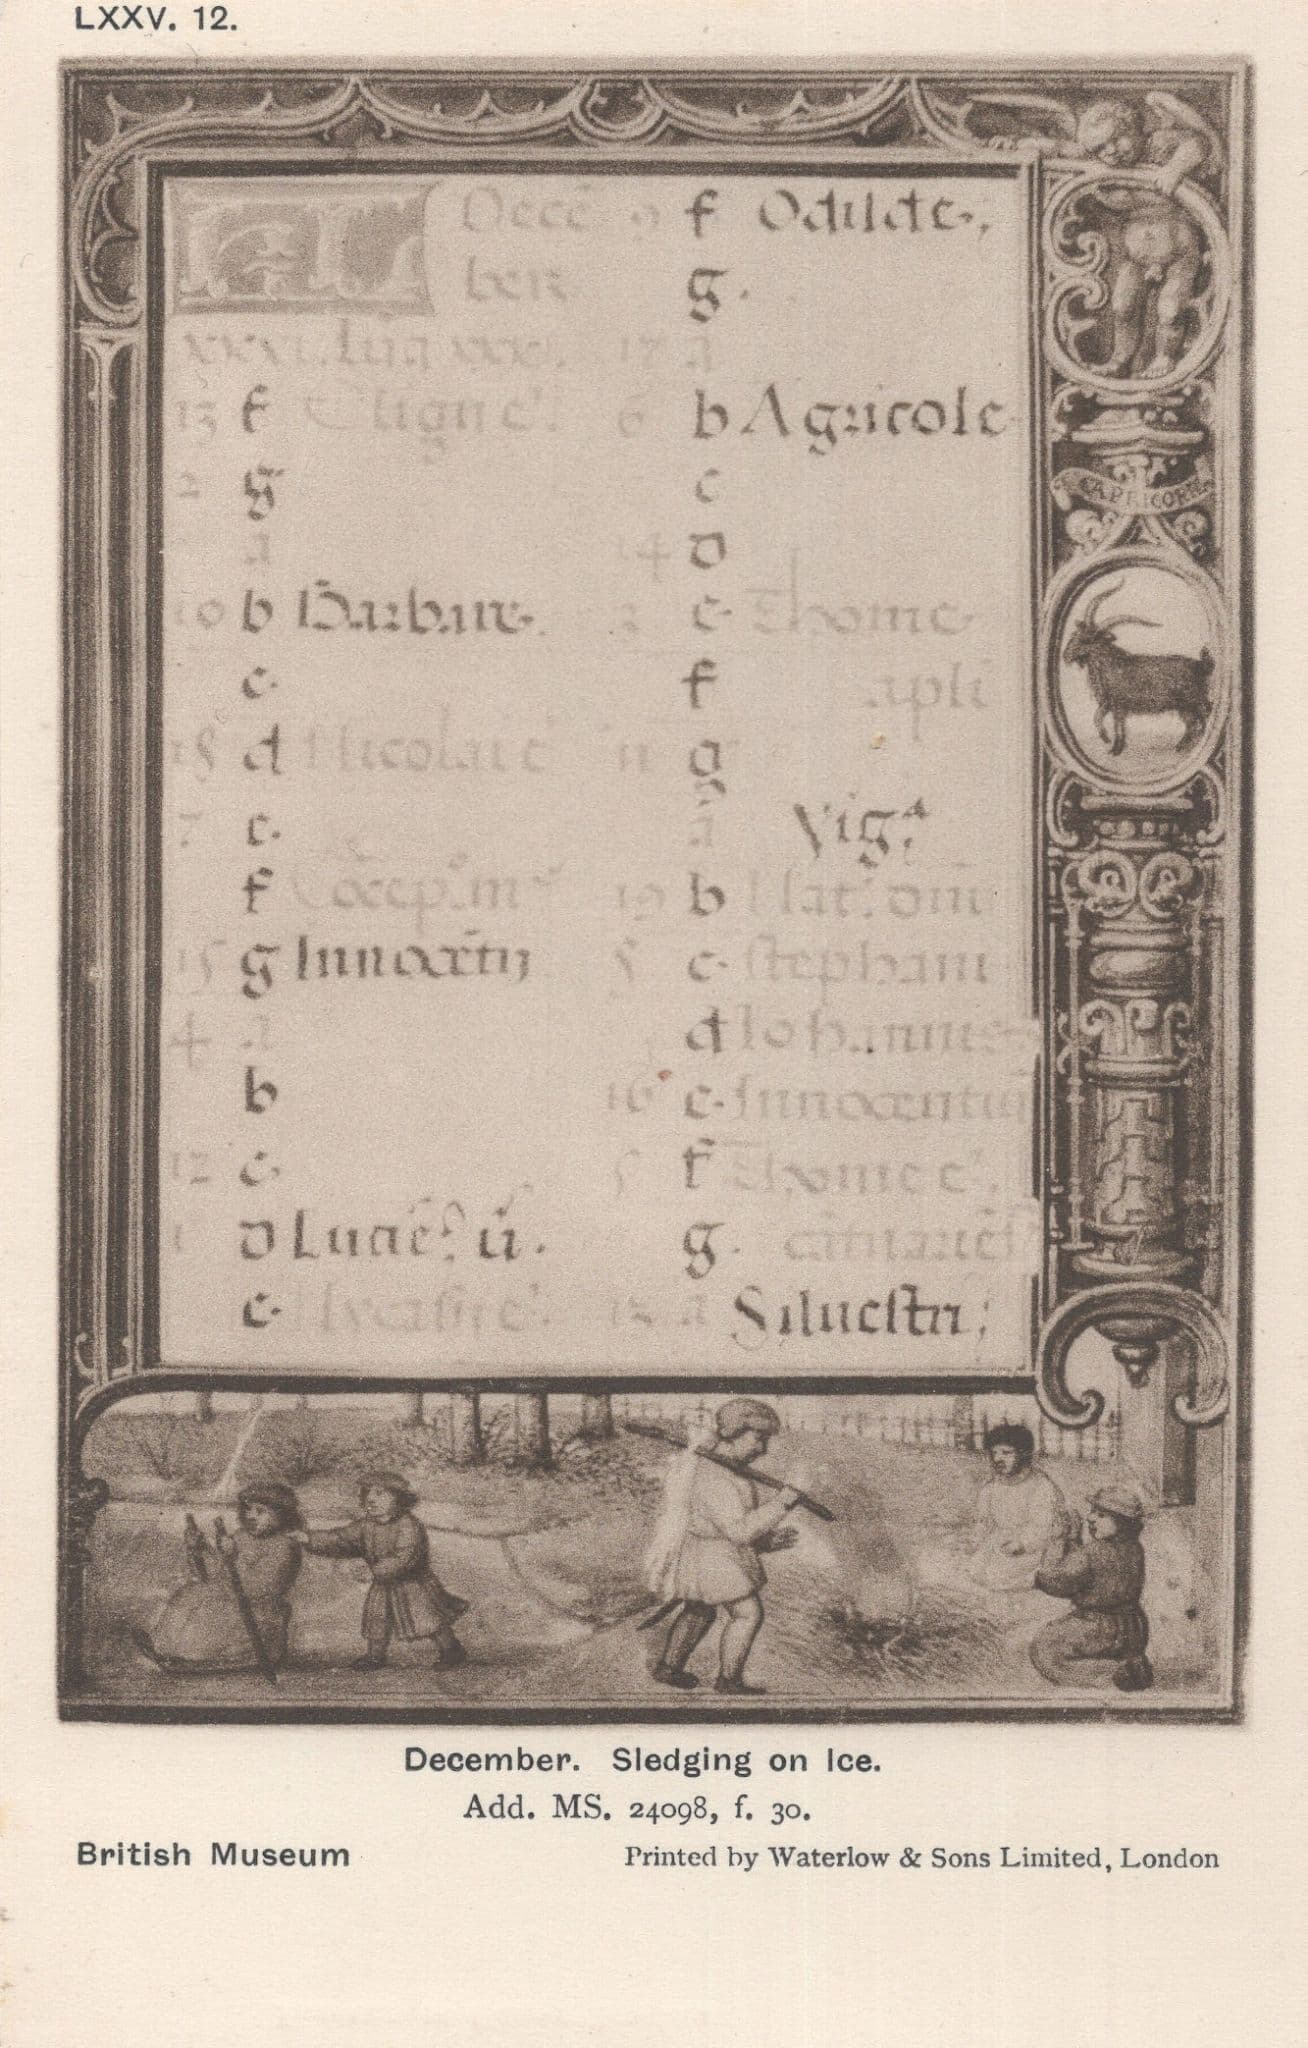 LXXV. 12.
Dece
ber
13 f Eligii e'.
2 g
a
10 b Barbare.
c.
18 d Nicolai e'
7 e.
f Concep. m
15 g Innocetij
4 a
b
12 c.
1 d Lucie. v.
e. Nycasii e'.
9 f Odilde.
g.
17 a
6 b Agricole
c
14 d
3 e. Thome
f apli
11 g
a Vigᵃ
19 b Nat. dni
c. stephani
d Iohannis
16 e. Innocentiu
5 f Thome e'.
g.
13 a Siluestri;
CAPRICORN
December. Sledging on Ice.
Add. MS. 24098, f. 30.
British Museum
Printed by Waterlow & Sons Limited, London